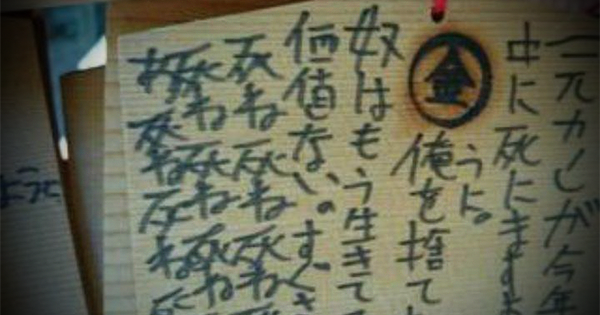 元カレが今年
中に死にますよ
うに。
金
俺を捨て
奴はもう生きて
価値ない。すぐ
死ね死ね死ね
死ね死ね死ね
死ね死ね
ように